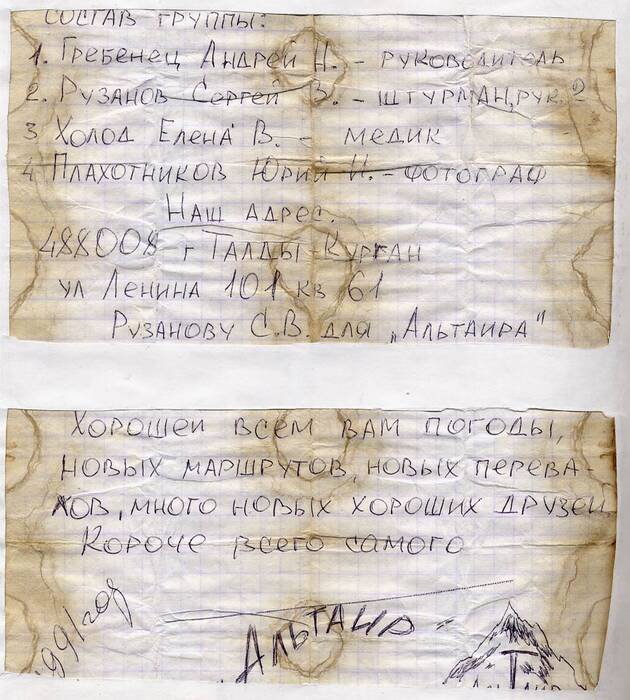 СОСТАВ ГРУППЫ:
1. ГРЕБЕНЕЦ АНДРЕЙ Н. - РУКОВОДИТЕЛЬ
2. РУЗАНОВ СЕРГЕЙ В. - ШТУРМАН, РУК.
3 ХОЛОД ЕЛЕНА В. - МЕДИК
4 ПЛАХОТНИКОВ ЮРИЙ И. - ФОТОГРАФ
НАШ АДРЕС.
488008 г ТАЛДЫ-КУРГАН
УЛ ЛЕНИНА 101 КВ 61
РУЗАНОВУ С.В. ДЛЯ „АЛЬТАИРА"
ХОРОШЕЙ ВСЕМ ВАМ ПОГОДЫ,
НОВЫХ МАРШРУТОВ, НОВЫХ ПЕРЕВА-
ЛОВ, МНОГО НОВЫХ ХОРОШИХ ДРУЗЕЙ
КОРОЧЕ ВСЕГО САМОГО
1991 год
АЛЬТАИР -
АЛЬТАИР